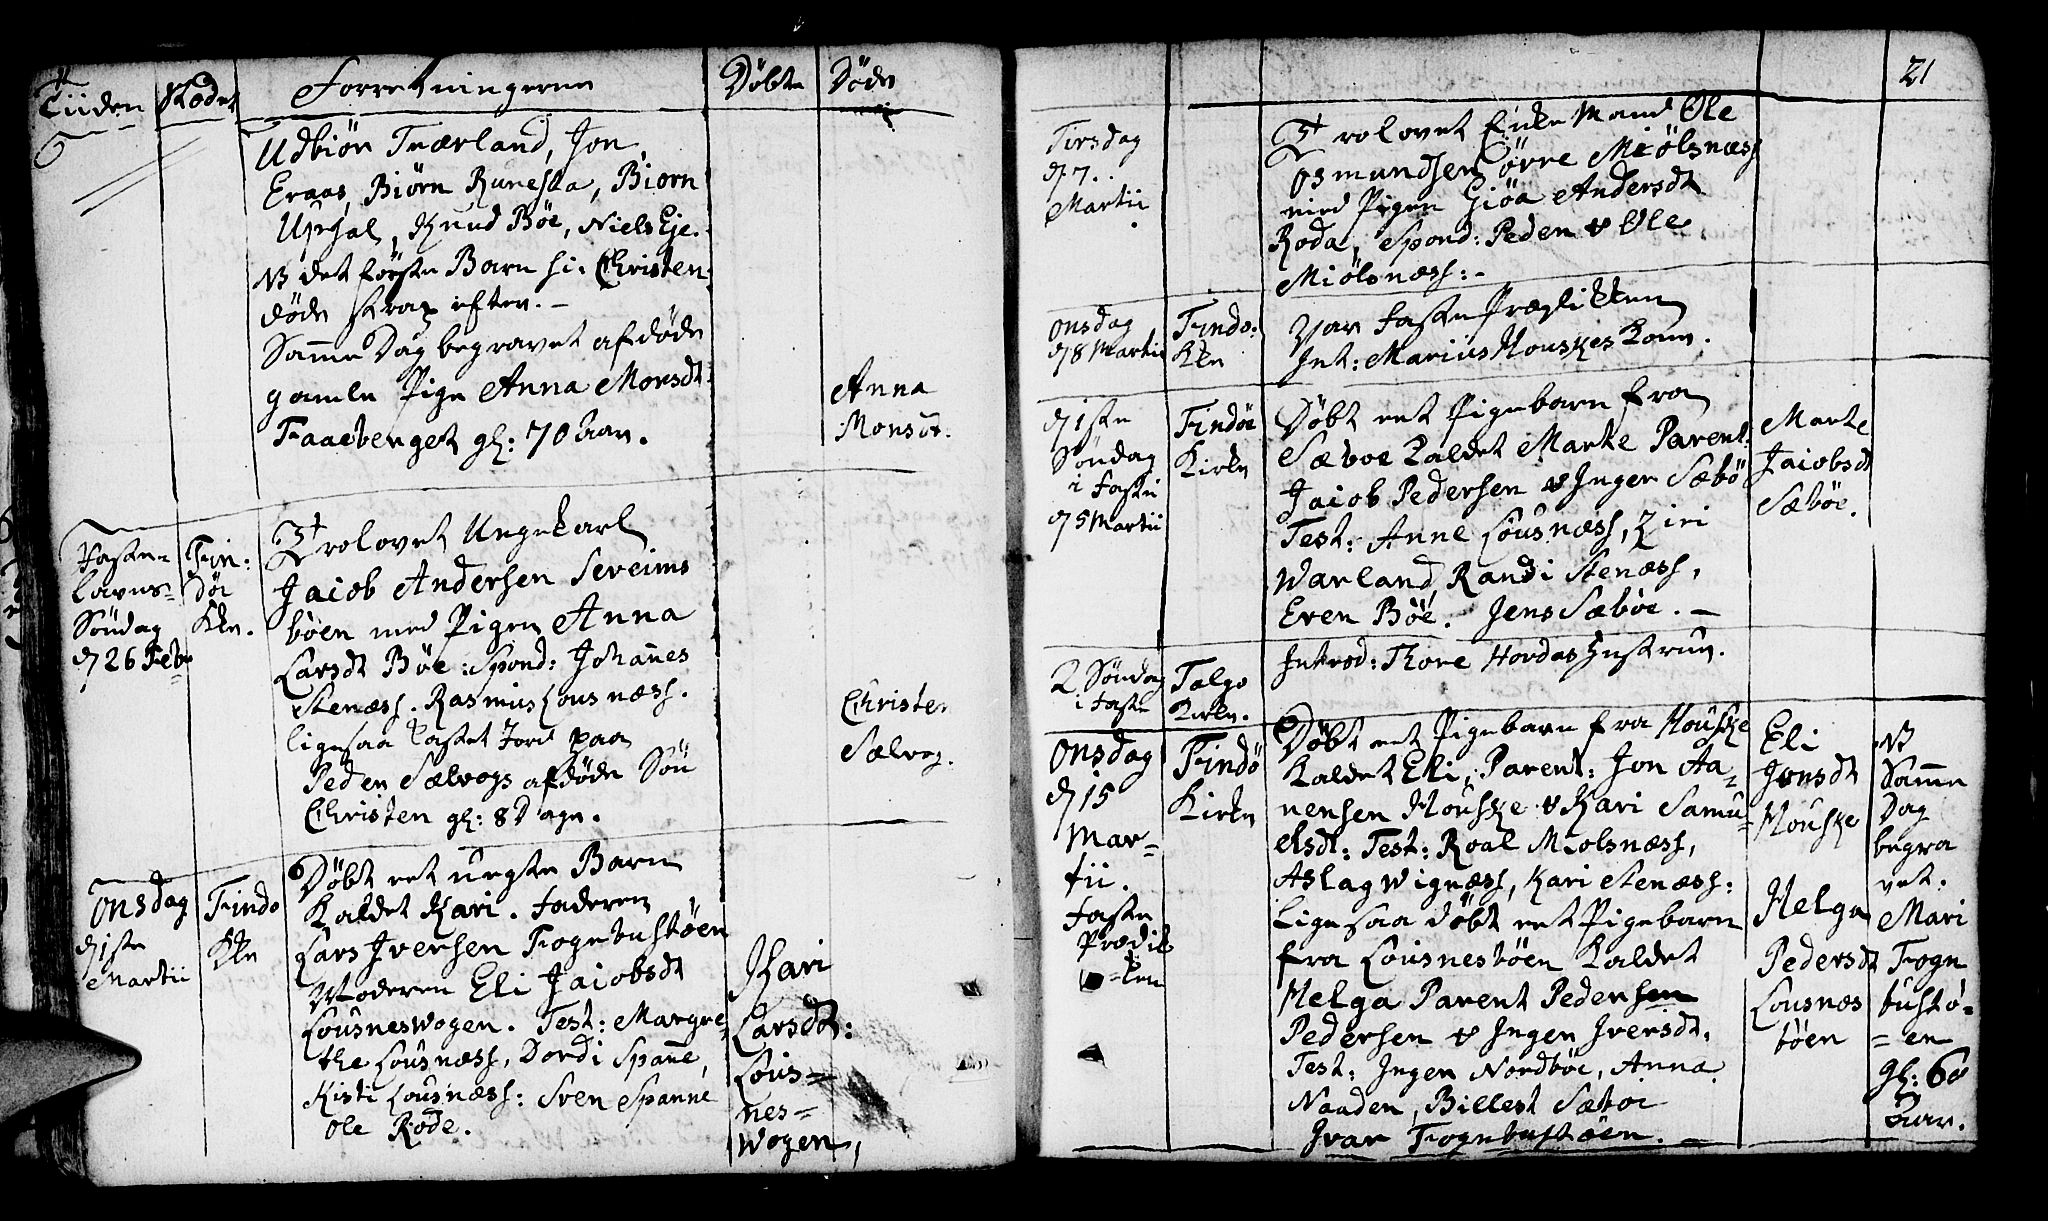 Tiiden Stedet Forretningerne Döbte Döde
Udbiön Tværland, Jon
Eraas, Biörn Runesta, Biorn
Upsal, Knud Böe, Niels Eje.
NB det förste Barn hi: Christen
döde strax efter. –
Samme Dag begravet afdöde
gamle Pige Anna Monsdt:
Faaeberget gl: 70 Aar.
Anna
Monsdt.
Faste-
lavns-
Söndag
d 26 Febr
Fin:
döe
Kke.
Trolovet Ungekarl
Jacob Andersen Sereims
böen med Pigen Anna
Larsdt Böe: Spond: Johañes
Stenæss. Rasmus Lousnæss.
ligesaa kastet Jord paa
Peder Sælvogs afdöde Sön
Christen gl: 8 Dage.
Christen
Sælvog.
Onsdag
d 1ste
Martii
Findö
Kke
Döbt eet uægte Barn
kaldet Kari. Faderen
Lars Iversen Fognbustöen
Moderen Eli Jacobsdt
Lousneswogen. Test: Margre-
the Lousnæss, Dordi Spanne,
Kisti Lousnæss: Sven Spanne
Ole Rode.
Kari
Larsdt:
Lous-
nes-
Wogen,
21
Tirsdag
d 7.
Martii
Trolovet Enke Mand Ole
Osmundsen övre Miölsnæss
med Pigen Giöa Andersdt
Roda, Spond: Peder & Ole
Miölsnæss: -
Onsdag
d 8 Martii
Findö
Kke
Var Faste Præslikken
Int: Marius Houskes Kone.
d 1ste
Söndag
i Faste
d 5 Martii
Findöe
Kirke
Döbt eet Pigebarn fra
Sæboe kaldet Marte Parent:
Jacob Pedersen & Inger Sæbö
Test: Anne Lousnæss, Ziri
Warland, Randi Stenæss,
Even Böe. Jens Sæböe. –
Marte
Jacobsdt
Sæböe.
2. Söndag
i Faste
Talgo
Kirke.
Introd: Thore Hordas Hustrue.
Onsdag
d 15
Mar-
tii.
Faste
Prædik
-ken
Findö
Kirke
Döbt eet Pigebarn fra Houske
kaldet Eli, Parent: Jon Aa-
nensen Houske & Kari Samu-
elsdt: Test: Roal Miolsnæss,
Aslag Wignæss, Kari Stenæss:
Ligesaa döbt eet Pigebarn
fra Lousnesböen kaldet
Helga Parent Pedersen
Pedersen & Inger Iversdt.
Test: Inger Nordböe, Anna
Naaden, Billest Sæboe
Ivar Fognbustöen. –
Eli
Jonsdt
Houske
Helga
Pedersdt
Lousnæs
böen
NB
Samme
Dag
begra
vet.
Mari
Fogn
bustö-
-en
gl: 60
Aar.